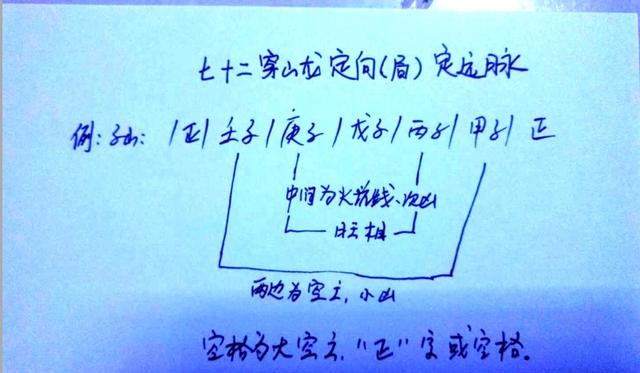 七十二穿山龙定向(局)定运脉
例:子山: |正|壬子|庚子|戊子|丙子|甲子|正
中间为火坑线、次凶
旺相
两边为空亡,小凶
空格为大空亡,“正”字或空格。